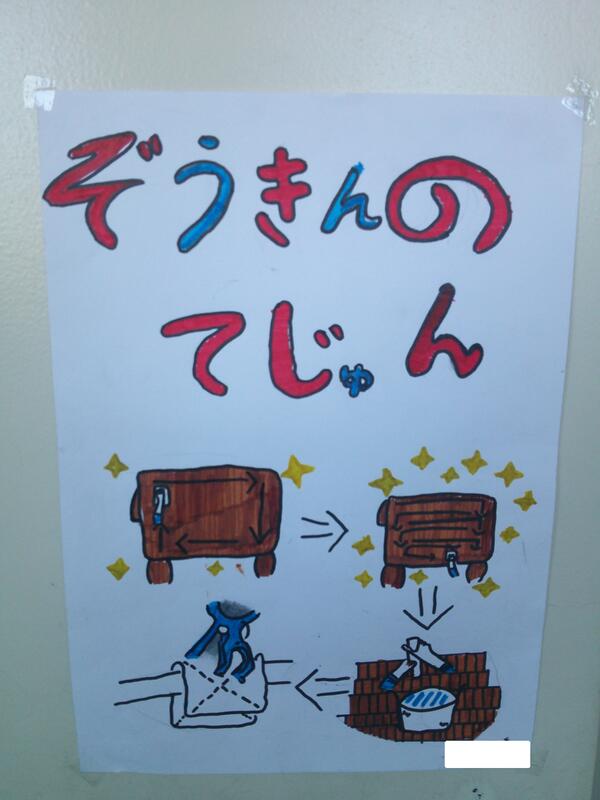 ぞうきんの
てじゅん